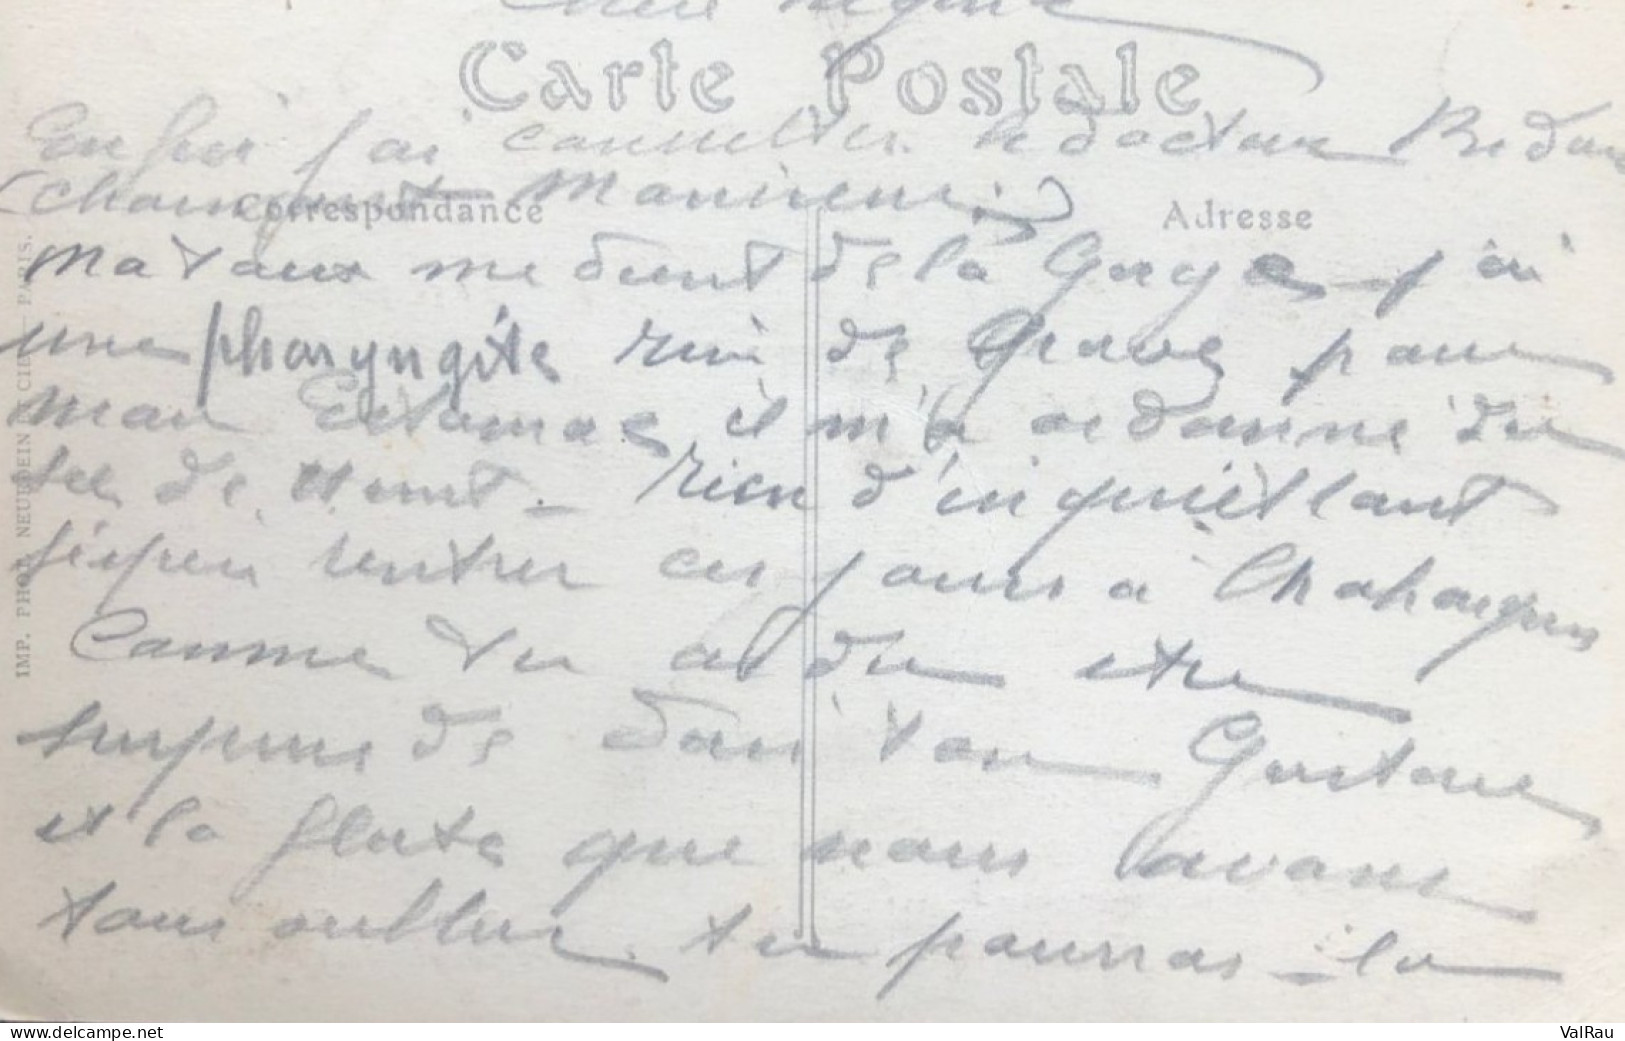 Chère Régine
Carte Postale
Enfin j'ai consulter le docteur
Correspondance
Adresse
ma toux me vient de la Gorge j'ai
une pharyngite rien de Grave pour
mon Estomac il m'a ordonné du
sel de Hunt - rien d'inquiétant
rentrer ces jours a
Comme tu as du etre
surprise de voir ton Gustave
et la flute que nous avons
tous oublier. tu pourras la
IMP. PHOT. NEURDEIN ET CIE. - PARIS.
delcampe.net
ValRau